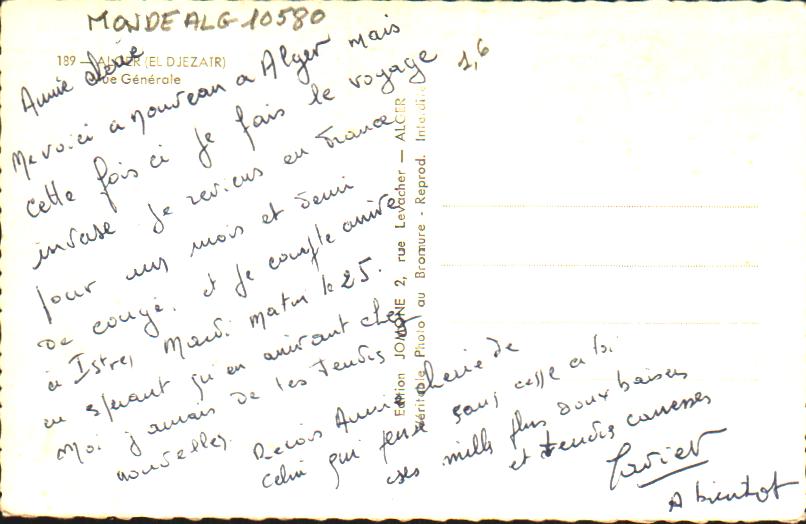 MONDE ALG 10580
189 — ALGER (EL DJEZAIR)
Vue Générale
1,6
Annie
Me voici a nouveau a Alger mais
cette fois ci je fais le voyage
inverse je reviens en France
pour un mois et demi
de congé. et je compte arrive
a Istres Mardi Matin le 25.
en esperant qu'en arrivant chez
Moi j'aurais de tes tendres
nouvelles.
Recois Annie cherie de
celui qui pense sans cesse a toi
ses mille plus doux baisers
et tendres caresses
A bientot
Edition JOMONE 2, rue Levacher — ALGER
Véritable Photo au Bromure - Reprod. Interdite